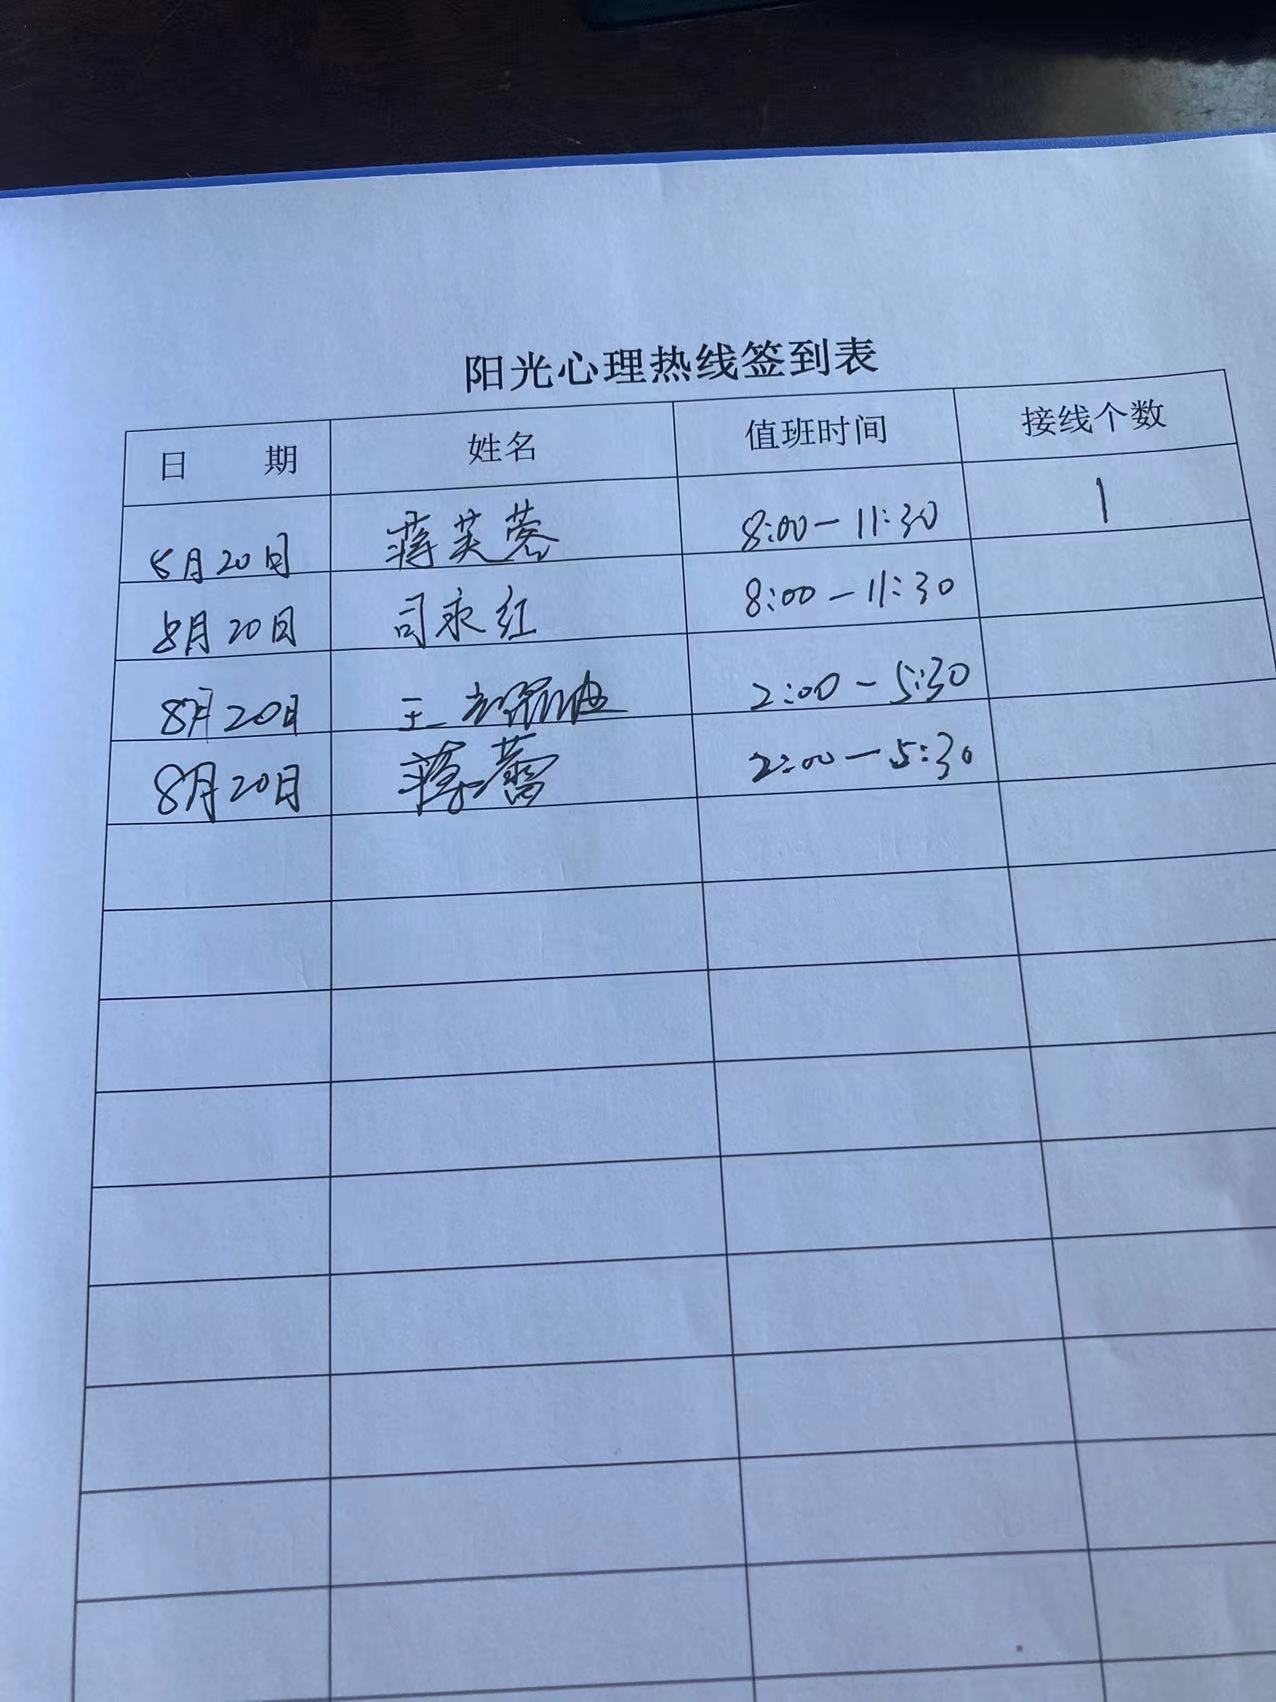 阳光心理热线签到表
日 期 姓名 值班时间 接线个数
8月20日 蒋芙蓉 8:00-11:30 1
8月20日 司永红 8:00-11:30
8月20日 王 2:00-5:30
8月20日 蒋蕾 2:00-5:30